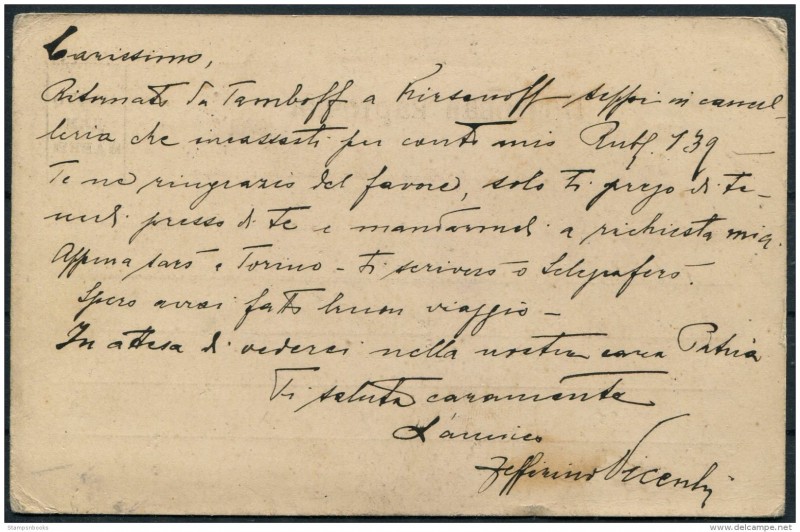 Carissimo,
Ritornato da Tamboff a Kirsanoff seppi in cancel-
leria che incassasti per conto mio Rubl. 139 —
Te ne ringrazio del favore, solo ti prego di te-
nerli presso di te e mandarmeli a richiesta mia.
Appena sarò a Torino - ti scriverò o telegraferò.
Spero avrai fatto buon viaggio -
In attesa di vederci nella nostra cara Patria
Ti saluta caramente
L'amico
Zefferino Vicenti
Stampsonbooks
delcampe.net